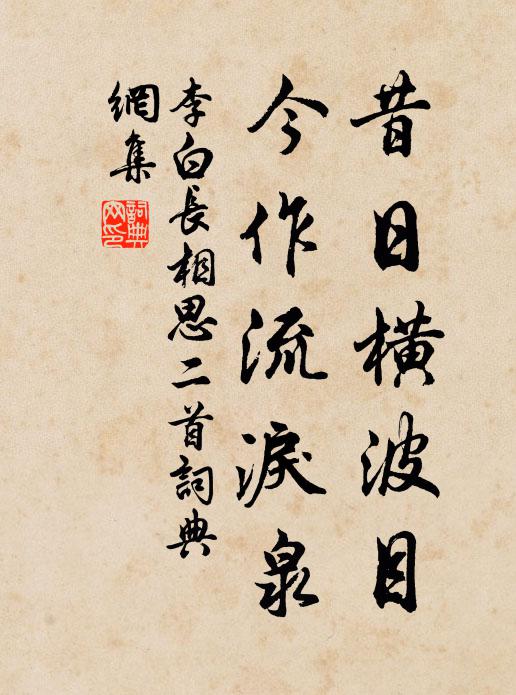 昔日橫波目
今作流淚泉
李白長相思二首詞典
網集
詞典
网印